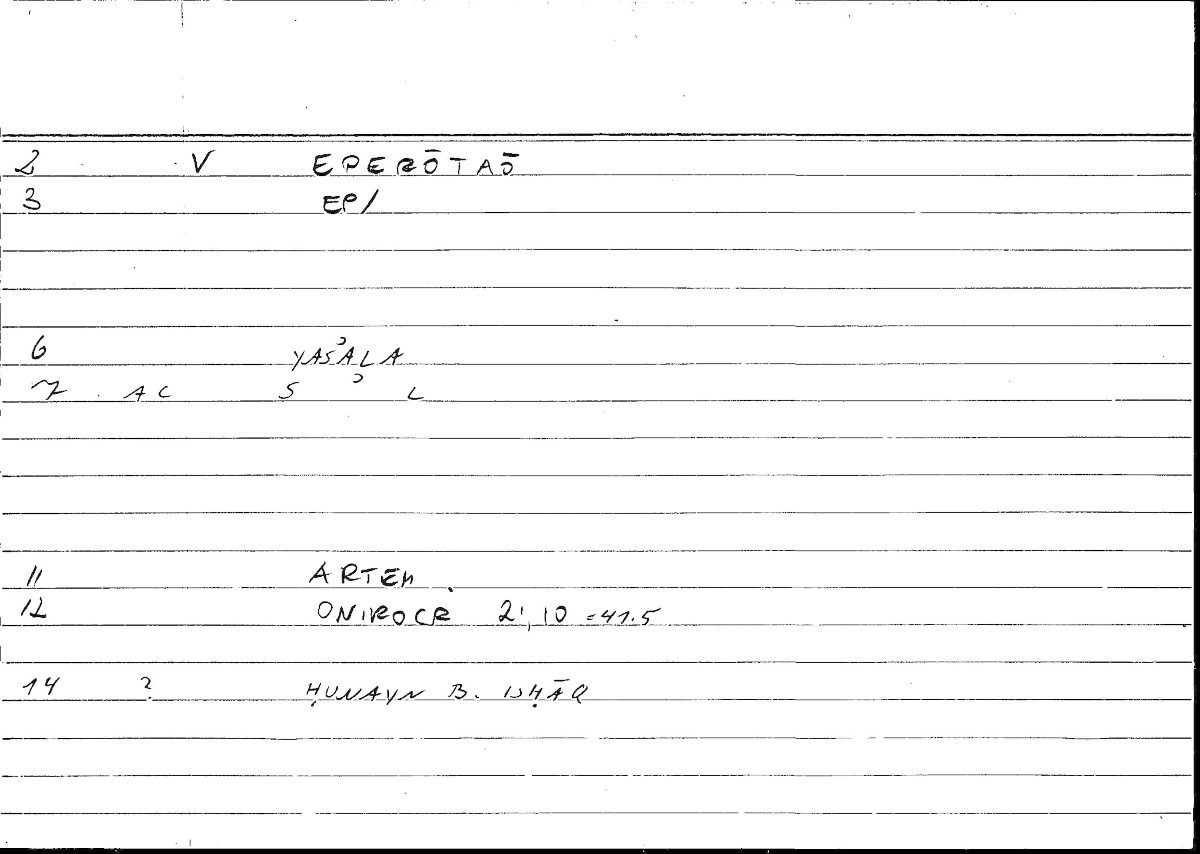 2 V EPERŌTAŌ
3 EP/
6 YASʾALA
7 AC S ʾ L
11 ARTEM.
12 ONIROCR 21,10 =41.5
14 ? ḤUNAYN B. ISḤĀQ